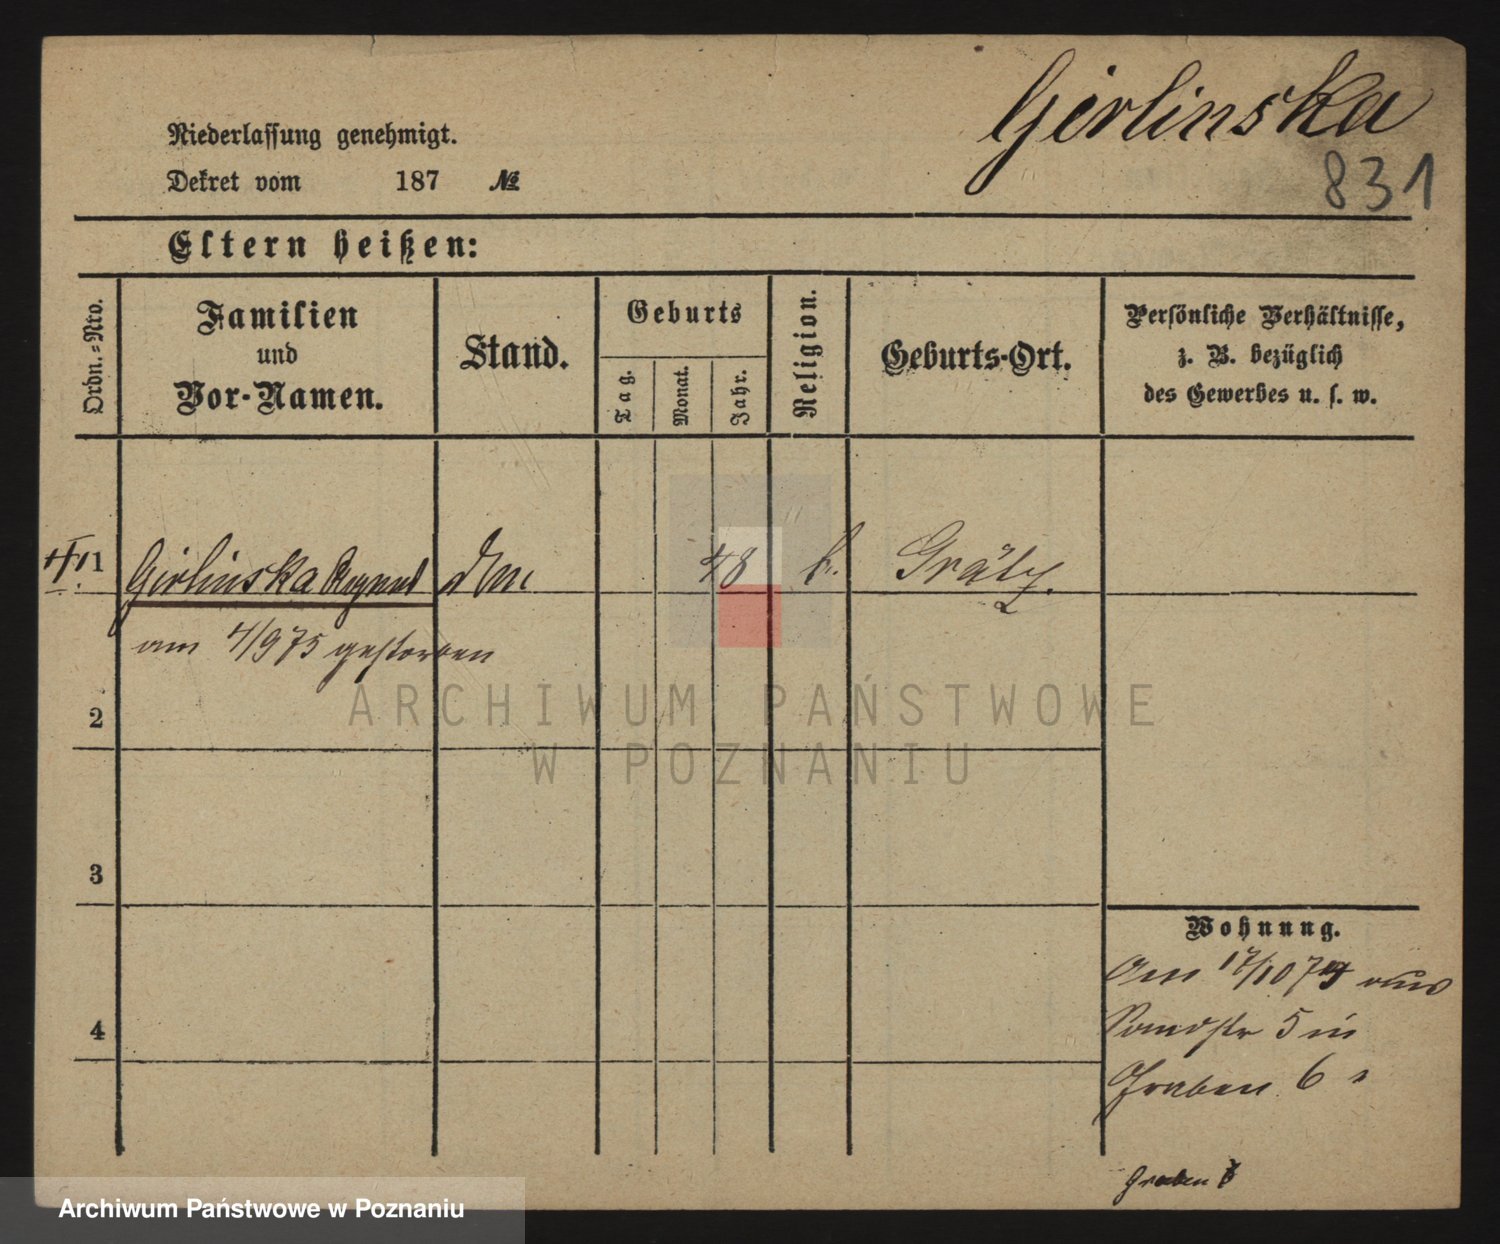 Girlinska
831
Niederlassung genehmigt.
Dekret vom 187 №
Eltern heißen:
Ordn.=Nro.
Familien
und
Vor-Namen.
Stand.
Geburts
Tag.
Monat.
Jahr.
Religion.
Geburts-Ort.
Persönliche Verhältnisse,
z. B. bezüglich
des Gewerbes u. s. w.
1 Girlinska 48 k. Grätz.
am 4/9 75 gestorben
2
3
4
Wohnung.
Am 17/10 74 aus
Sandstr 5 in
Graben 6
Graben 6
ARCHIWUM PAŃSTWOWE
W POZNANIU
Archiwum Państwowe w Poznaniu